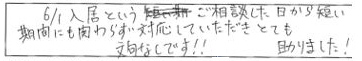 6/1入居というご相談した日から短い
期間にも関わらず対応していただきとても
文句なしです!! 助りました!